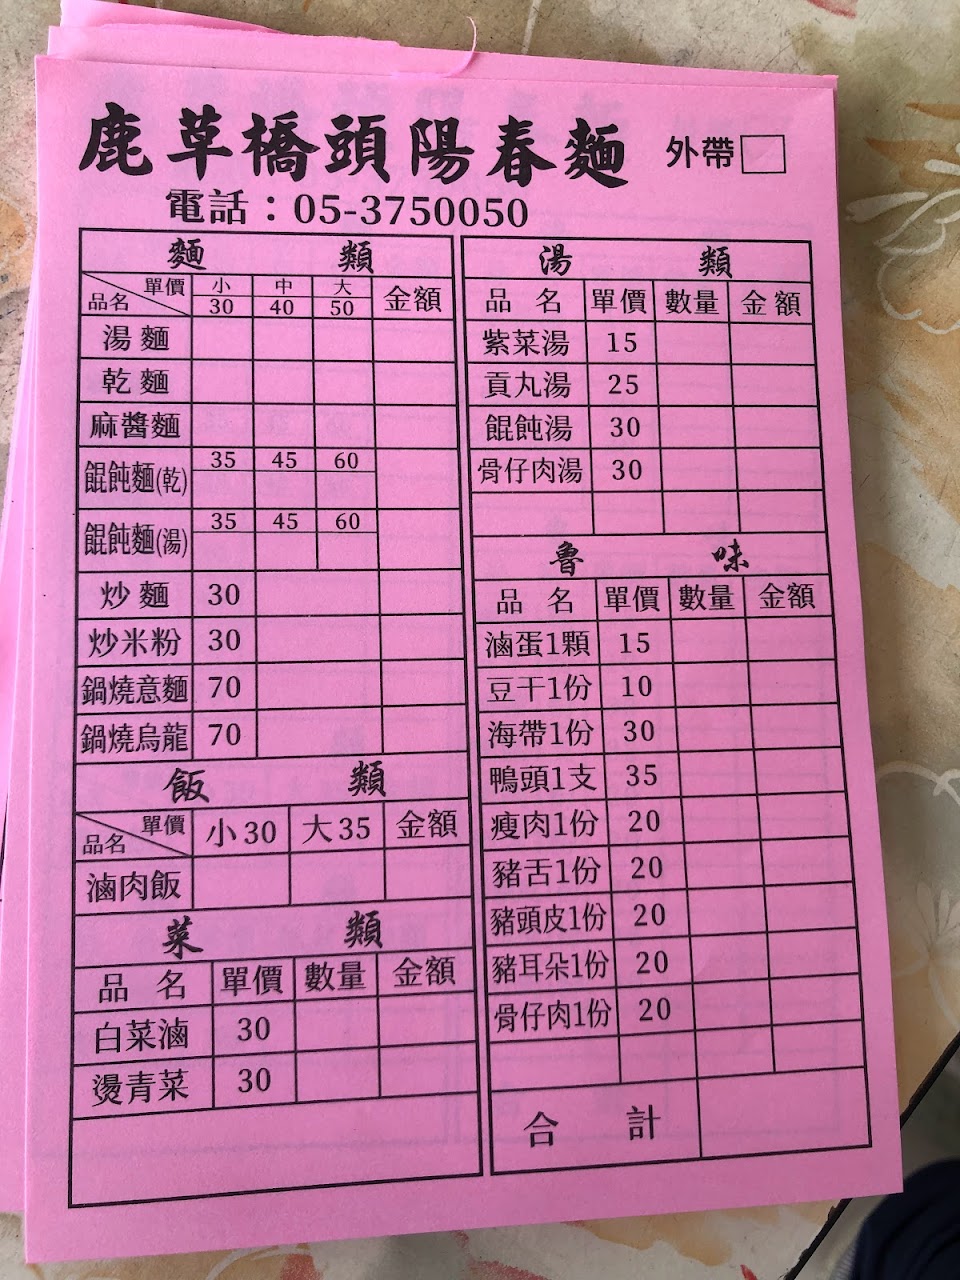 鹿草橋頭陽春麵 外帶
電話：05-3750050
麵 類
品名 單價 小 中 大 金額
30 40 50
湯麵
乾麵
麻醬麵
餛飩麵(乾) 35 45 60
餛飩麵(湯) 35 45 60
炒麵 30
炒米粉 30
鍋燒意麵 70
鍋燒烏龍 70
飯 類
品名 單價 小30 大35 金額
滷肉飯
菜 類
品名 單價 數量 金額
白菜滷 30
燙青菜 30
湯 類
品名 單價 數量 金額
紫菜湯 15
貢丸湯 25
餛飩湯 30
骨仔肉湯 30
魯 味
品名 單價 數量 金額
滷蛋1顆 15
豆干1份 10
海帶1份 30
鴨頭1支 35
瘦肉1份 20
豬舌1份 20
豬頭皮1份 20
豬耳朵1份 20
骨仔肉1份 20
合計